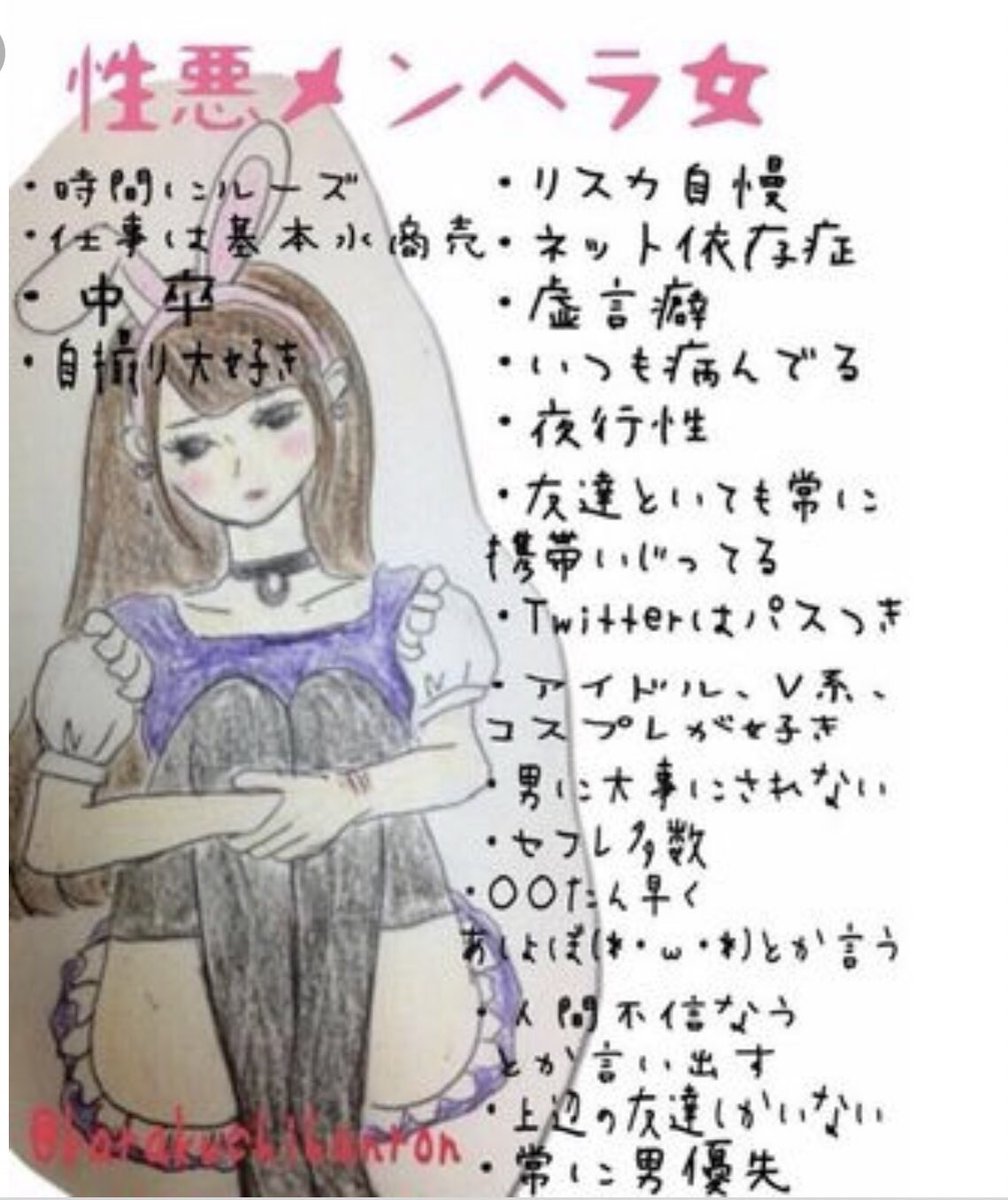 性悪メンヘラ女
・時間にルーズ
・仕事は基本水商売
・中卒
・自撮り大好き
・リスカ自慢
・ネット依存症
・虚言癖
・いつも病んでる
・夜行性
・友達といても常に
携帯いじってる
・Twitterはパスつき
・アイドル、V系、
コスプレが好き
・男に大事にされない
・セフレ多数
・〇〇たん早く
あしょぼ(*・ω・*)とか言う
・人間不信なう
とか言い出す
・上辺の友達しかいない
・常に男優先